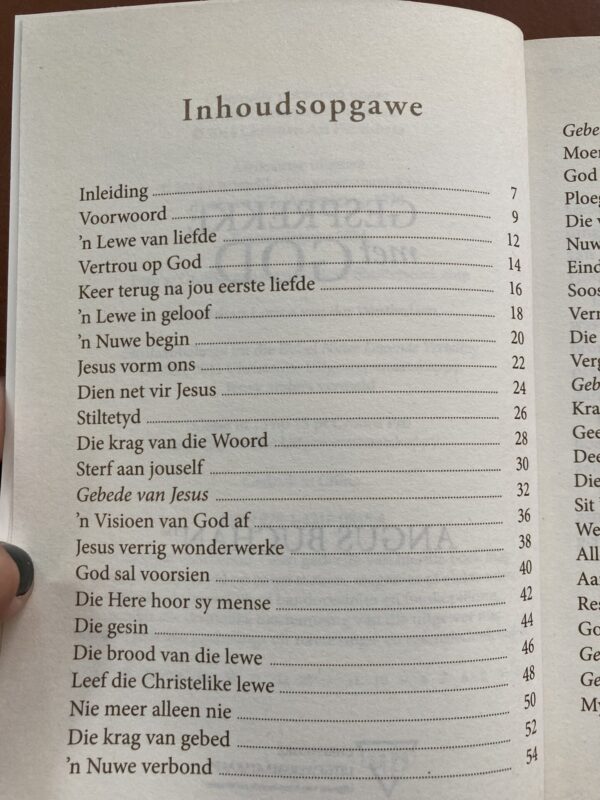 Inhoudsopgawe
Inleiding 7
Voorwoord 9
’n Lewe van liefde 12
Vertrou op God 14
Keer terug na jou eerste liefde 16
’n Lewe in geloof 18
’n Nuwe begin 20
Jesus vorm ons 22
Dien net vir Jesus 24
Stiltetyd 26
Die krag van die Woord 28
Sterf aan jouself 30
Gebede van Jesus 32
’n Visioen van God af 36
Jesus verrig wonderwerke 38
God sal voorsien 40
Die Here hoor sy mense 42
Die gesin 44
Die brood van die lewe 46
Leef die Christelike lewe 48
Nie meer alleen nie 50
Die krag van gebed 52
’n Nuwe verbond 54
God
Die
Die
Sit